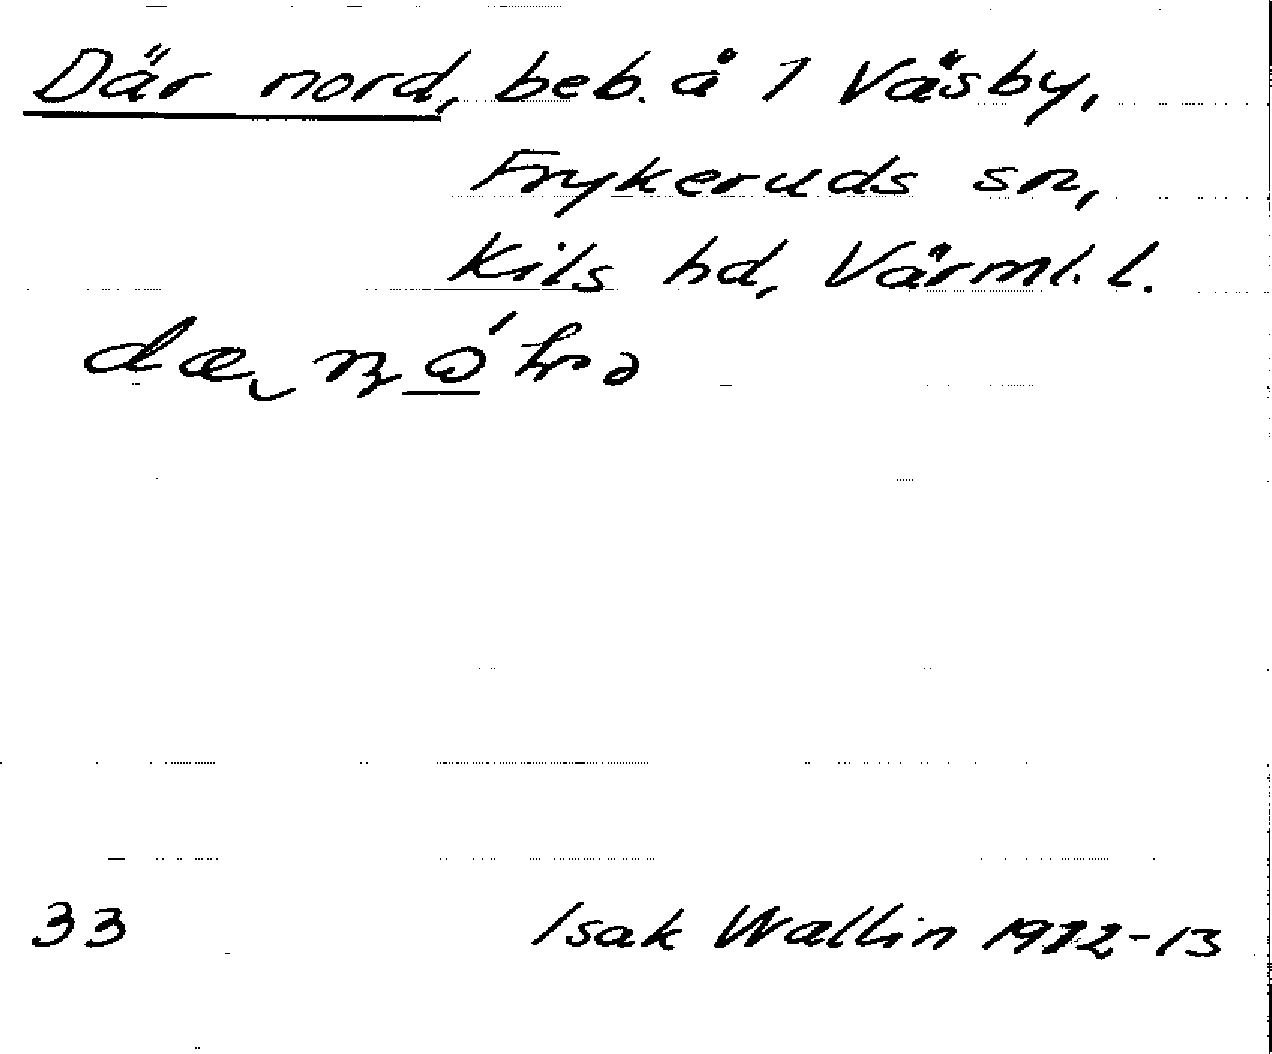 Där nord, beb. å 1 Väsby,
Frykeruds sn,
Kils hd, Värml. l.
33
Isak Wallin 1912-13